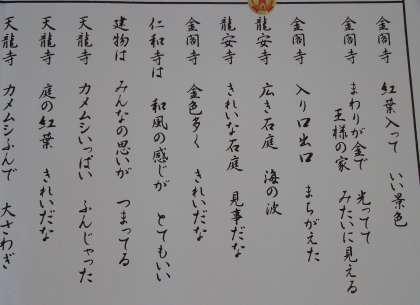 金閣寺　紅葉入って　いい景色
金閣寺　まわりが金で　光ってて
王様の家　みたいに見える
金閣寺　入り口出口　まちがえた
龍安寺　広き石庭　海の波
龍安寺　きれいな石庭　見事だな
金閣寺　金色多く　きれいだな
仁和寺は　和風の感じが　とてもいい
建物は　みんなの思いが　つまってる
天龍寺　カメムシいっぱい　ふんじゃった
天龍寺　庭の紅葉　きれいだな
天龍寺　カメムシふんで　大さわぎ